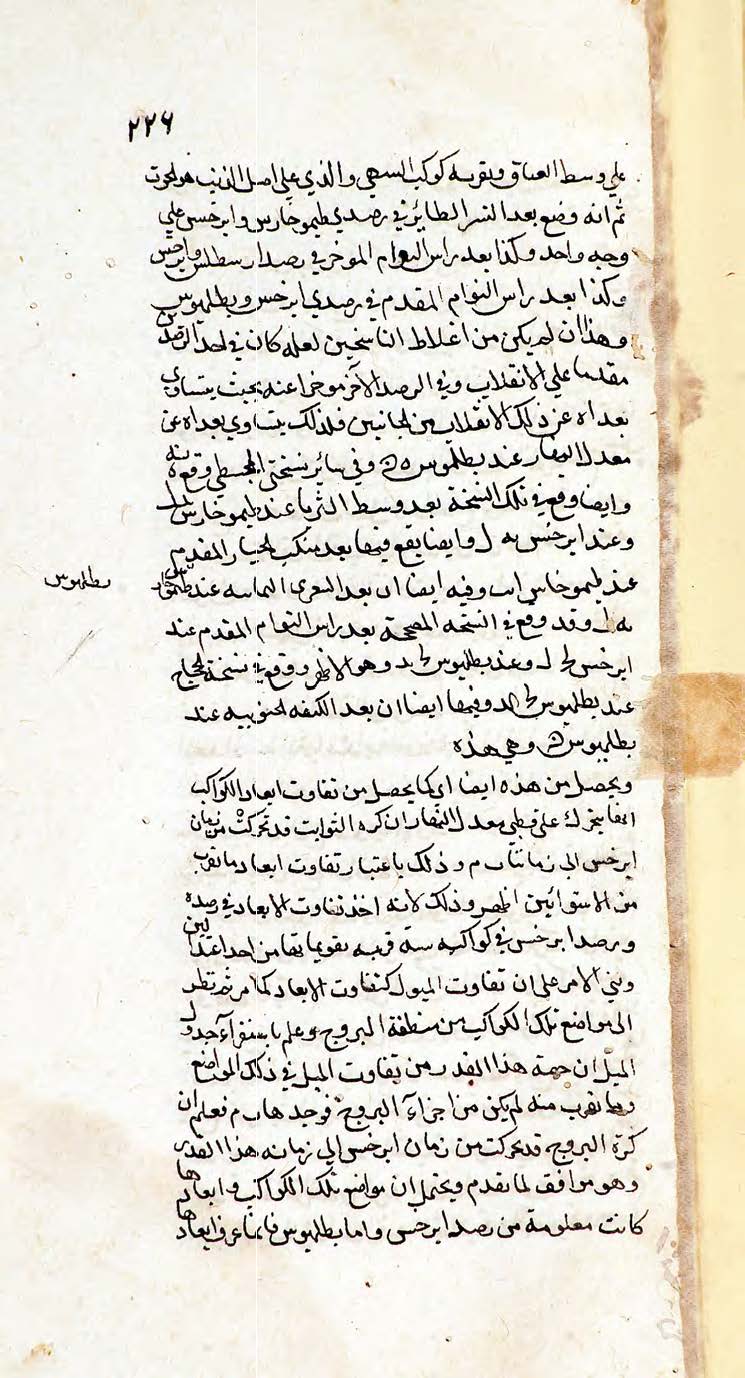 ٢٢٦
علي وسط العناق وبقربه كوكب السهي والذي علي اصل الذنب هو الحوت
ثم انه وضع بعد النسر الطائر في رصدي طيموخارس وابرخس علي
وجه واحد وكذا بعد راس التوام الموخر في رصد ارسطلس وابرخس
وكذا بعد راس التوام المقدم في رصدي ابرخس وبطلميوس
وهذا ان لم يكن من اغلاط الناسخين لعله كان في احد الرصدين
مقدما علي الانقلاب وفي الرصد الآخر موخرا عنه بحيث يتساوي
بعداه عن ذلك الانقلاب من الجانبين فلذلك يتساوي بعداه عن
معدل النهار عند بطلميوس وفي سائر نسختي المجسطي وقع
وايضا وقع في تلك النسخة بعد وسط الثريا عند طيموخارس
وعند ابرخس يه ل وايضا يقع فيها بعد منكب الجبار المقدم
عند طيموخاس اب وفيه ايضا ان بعد الشعري اليمانيه عند طيموخار
بطلميوس
وقد وقع في النسخه المصححة بعد راس التوام المقدم عند
ابرخس ل وعند بطلميوس يد وهو الاظهر ووقع في نسخة الحجاج
عند بطلميوس وفيها ايضا ان بعد الكفه الجنوبيه عند
بطلميوس وهي هذه
ويحصل من هذه ايضا اي كما يحصل من تفاوت ابعاد الكواكب
انها يتحرك علي قطبي معدل النهار ان كرة الثوابت قد تحركت من زمان
ابرخس الي زماننا ب م وذلك باعتبار تفاوت ابعاد ما تقرب
من الاستوائين اظهر وذلك لانه اخذ تفاوت الابعاد في رصده
ورصد ابرخس في كواكب ستة قريبه تقويماتها من احد اعتدالين
وبني الامر علي ان تفاوت الميول كتفاوت الابعاد كما مر ثم نظر
الي مواضع تلك الكواكب من منطقة البروج وعلم باستقرآء جدول
الميل ان حصة هذا القدر من تفاوت الميل في ذلك المواضع
وما تقرب منه لم يكن من اجزآء البروج فوجدها ب م فعلم ان
كرة البروج قد تحركت من زمان ابرخس الي زمانه هذا القدر
وهو موافق لما تقدم ويحتمل ان مواضع تلك الكواكب وابعادها
كانت معلومة من رصد ابرخس واما بطلميوس فانما عرف ابعادها